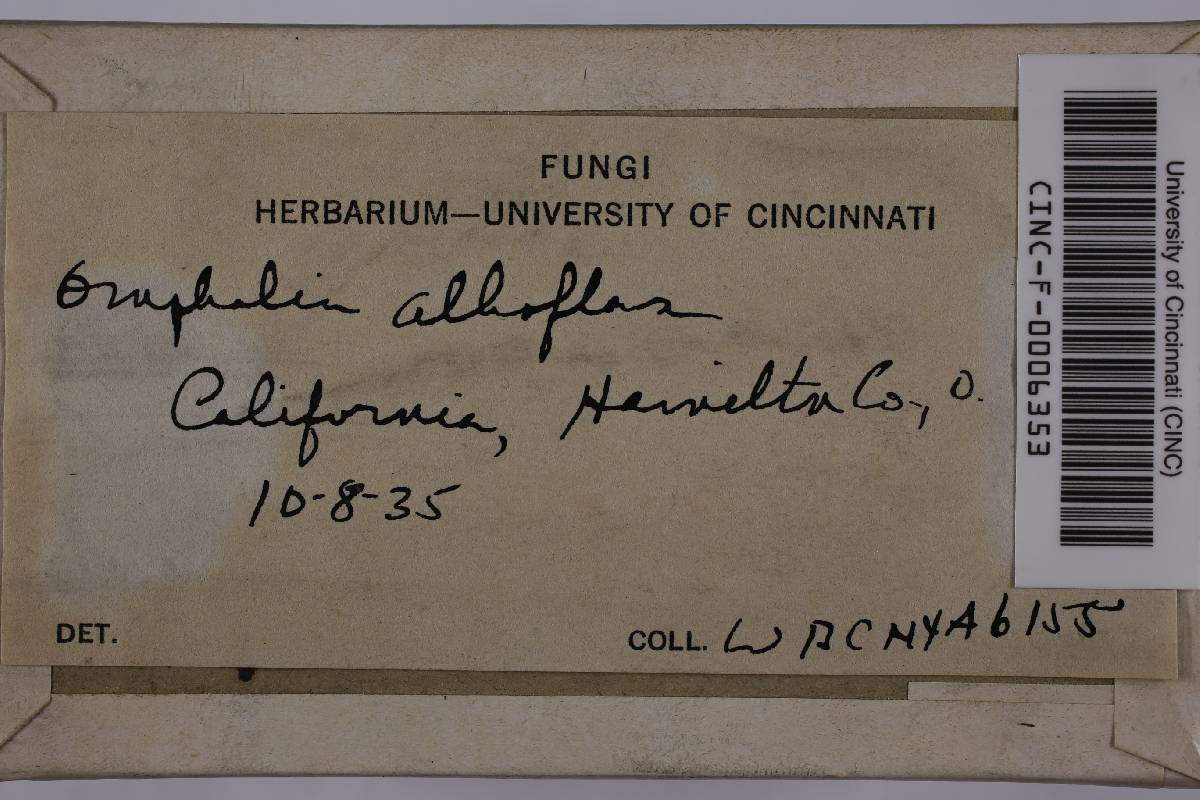 FUNGI
HERBARIUM—UNIVERSITY OF CINCINNATI
Omphalia alboflava
California, Hamilton Co., O.
10-8-35
DET.
COLL. W B C NYA 6155
University of Cincinnati (CINC)
CINC-F-0006353